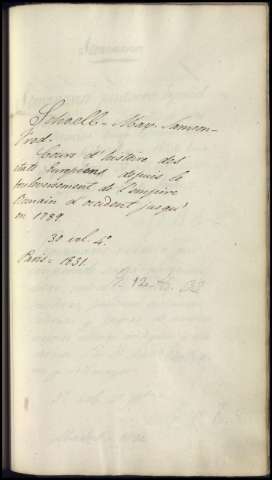 Schoell - Max. Samson-
Fred.
Cours d'histoire des
états Européens depuis le
bouleversement de l'empire
Romain d'occident jusqu'
en 1789.
30 vol. 4º
Paris - 1831.